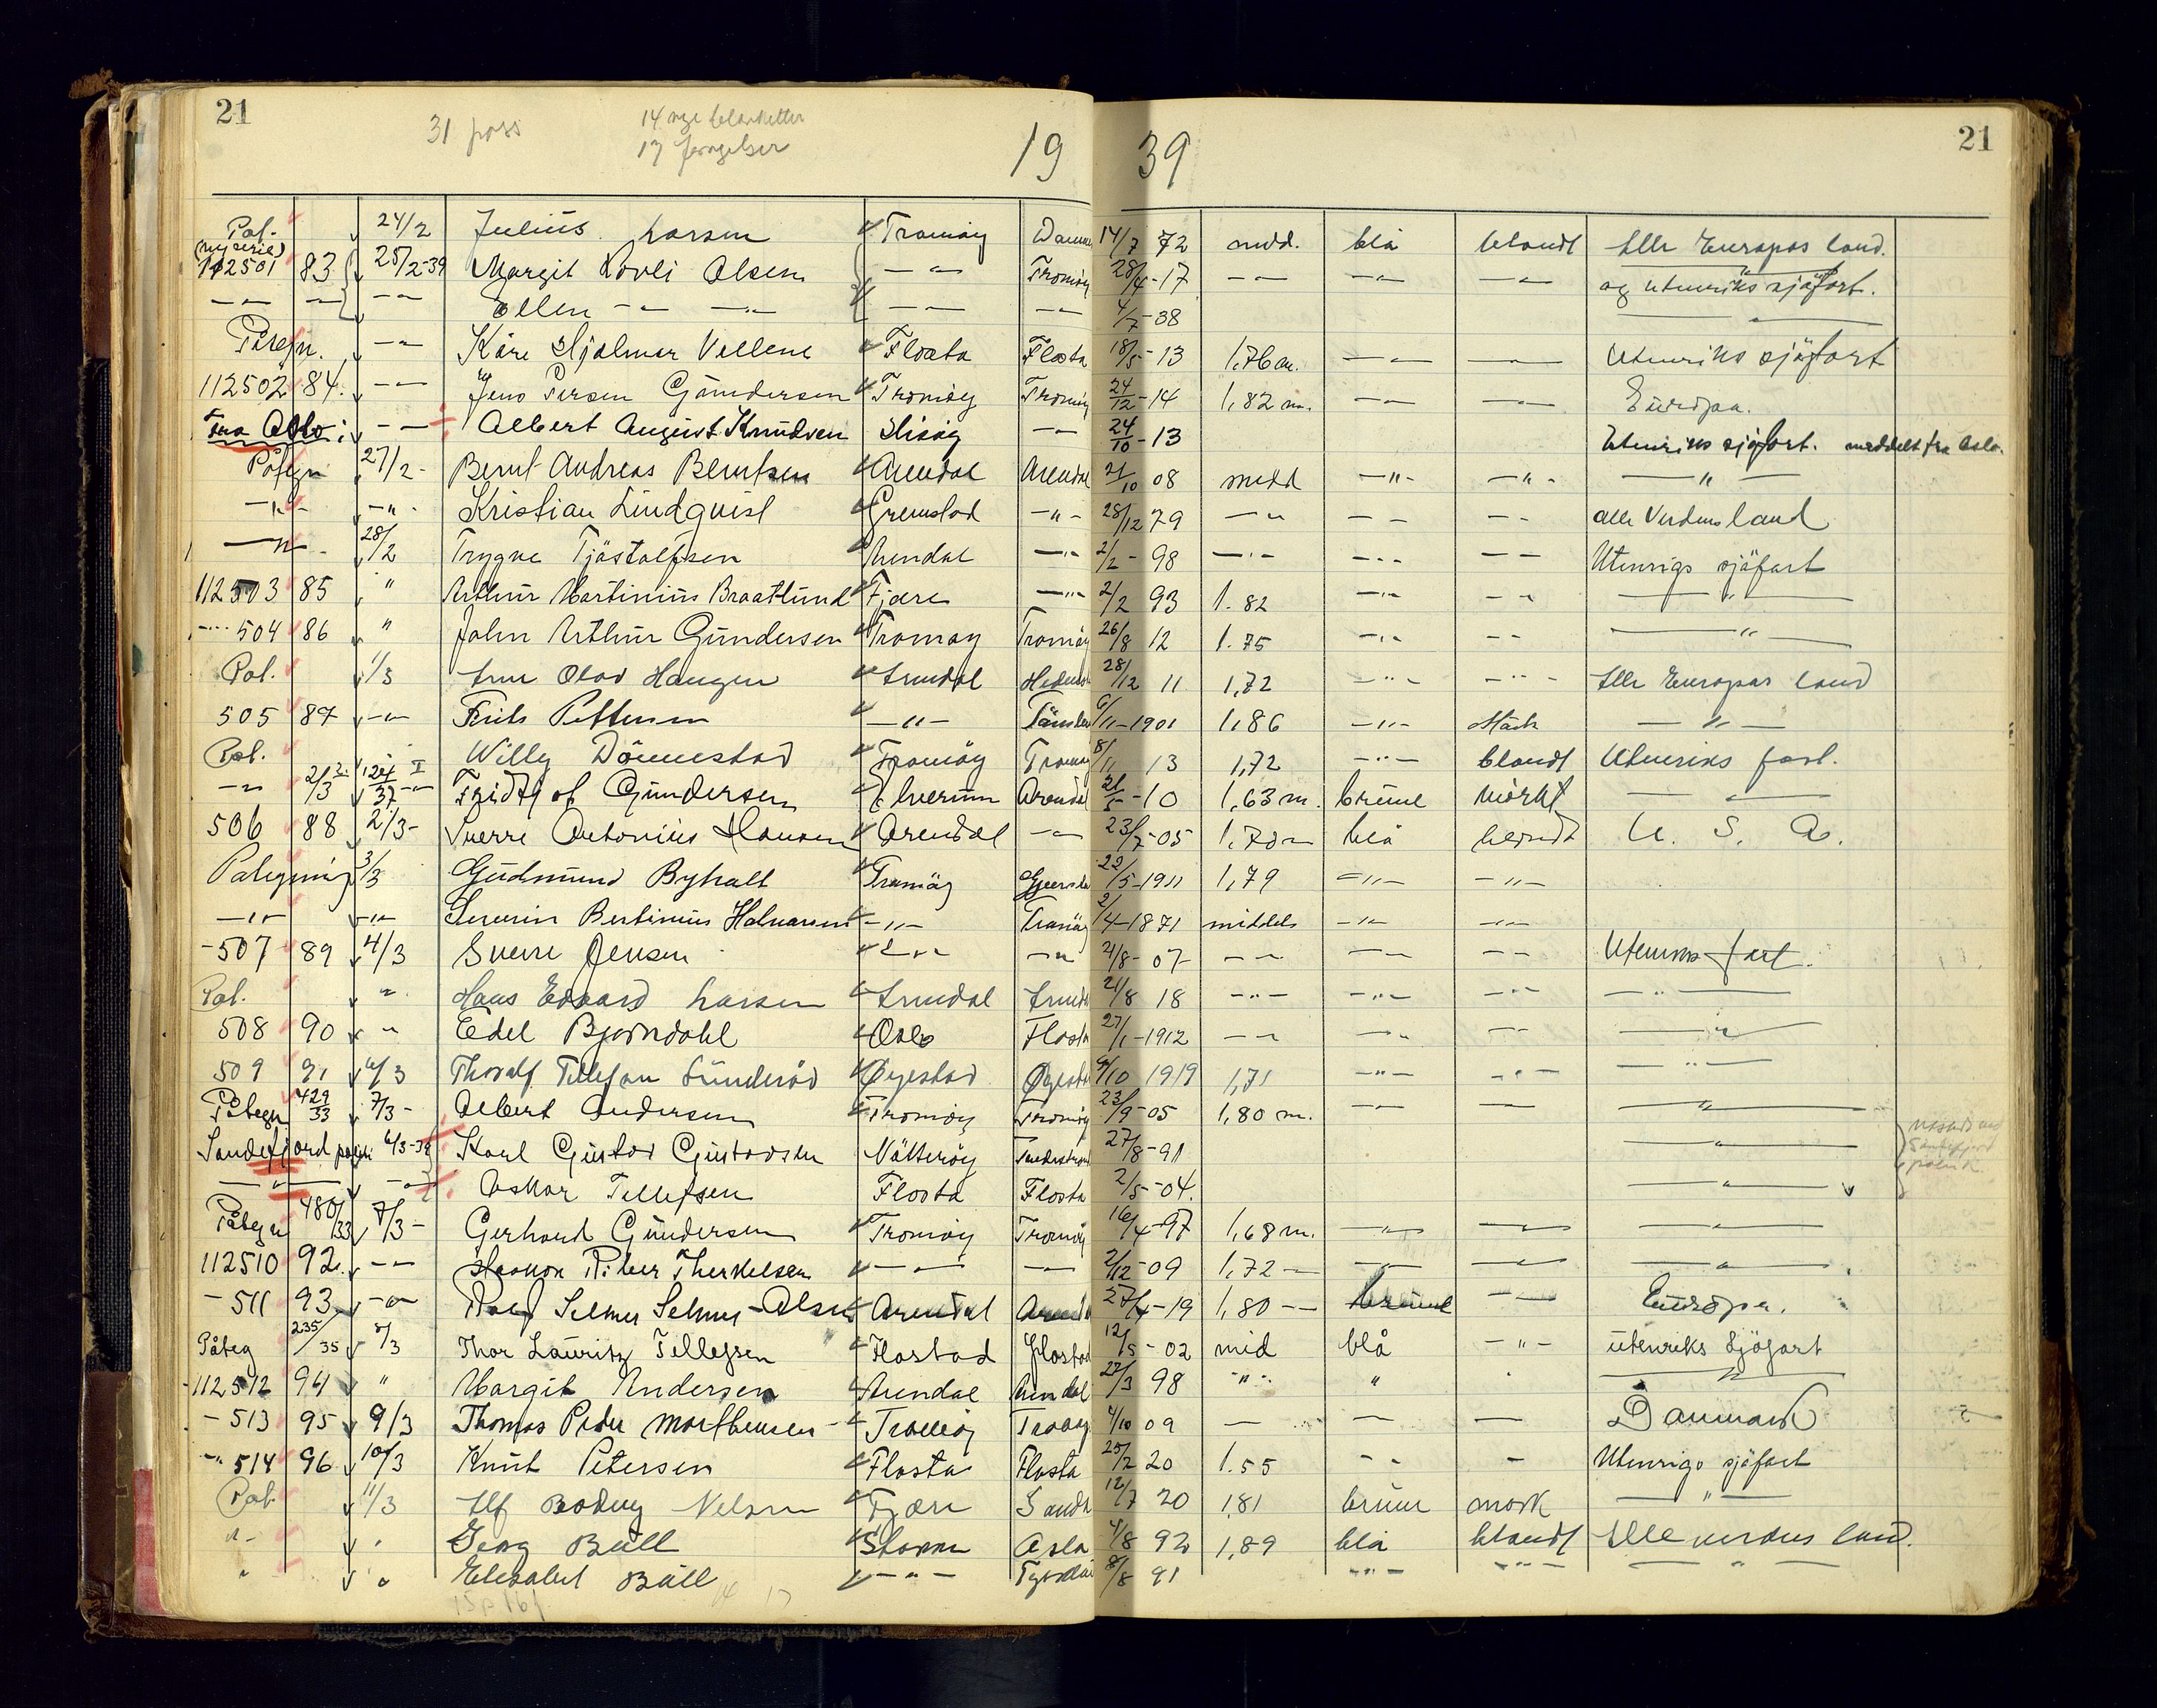 21
31 pass
14 nye blanketter
17 fornyelser
19 39
21
Pat. 24/2 Julius Larsen Tromöy 14/7 72 midd. blå blondt Alle Europas land.
(ny serie)
112501 83 25/2-39 Margit Lovli Olsen -"- Tromöy 28/4-17 -"- -"- -"- og utenriks sjöfart.
-"- -"- -"- Ellen -"- -"- -"- -"- 4/7-38
Påtegn. -"- Kåre Hjalmar Vellene Flosta Flosta 18/5-13 1,76 m. -"- -"- Utenriks sjöfart
112502 84. -"- Jens Persen Gundersen Tromöy Tromöy 24/12-14 1,82 m. -"- -"- Europa.
Fra Oslo: -"- Albert August Knudsen Hisöy -"- 24/10-13 Utenriks sjöfart. meddelt fra Oslo.
Påtegn 27/2- Bernt Andreas Berntsen Arendal Arendal 21/10 08 midd -"- -"- -"-
-"- -"- Kristian Lindqvist Grimstad -"- 28/12 79 -"- -"- -"- alle Verdens land
-"- 28/2 Trygve Tjöstolfsen Arendal -"- 2/2-98 -"- -"- -"- Utenrigs sjöfart
112503 85 " Arthur Martinius Braatlund Fjære -"- 2/2 93 1.82 -"- -"- -"-
-"- 504 86 " John Arthur Gundersen Tromøy Tromöy 26/8 12 1.75 -"- -"- -"-
Pat. 1/3 Olav Haugen Arendal 28/12 11 1,72 -"- -"- Alle Europas land
505 87 -"- Frits Pettersen -"- 6/11-1901 1,86 -"- Mörk -"-
Pat. Willy Dönnestad Tromöy Tromöy 8/11 13 1,72 -"- blondt Utenriks fart.
-"- 2/3 124/37 Fridtjof Gundersen Elverum Arendal 21/5-10 1,63 m. brune mörkt -"-
506 88 2/3- Sverre Antonius Hansen Arendal -"- 23/7-05 1,70 m blå blondt U. S. A.
Påtegning 3/3 Gudmund Byholt Tromöy 22/5-1911 1,79 -"- -"-
-"- -"- Severin Bertinius Halvorsen -"- Tromöy 2/4-1871 middels -"- -"-
-507 89 4/3 Sverre Jensen -"- -"- 21/8-07- -"- -"- -"- Utenriks fart.
Pat. " Hans Edvard Larsen Arendal Arendal 21/8 18 -"- -"- -"- -"-
508 90 " Edel Bjorndahl Oslo Flosta 27/1-1912 -"- -"- -"- -"-
509 91 6/3 Thoralf Tellefsen Sunderöd Øyestad Øyestad 9/10 1919 1,71 -"- -"- -"-
Påtegn 429/33 7/3- Albert Andersen Tromöy Tromöy 23/9-05 1,80 m. -"- -"- -"-
Sandefjord politi 6/3-39 Karl Gustav Gustavsen Nötteröy 27/8-91 -"-
-"- -"- Oskar Tellefsen Flosta Flosta 2/5-04. -"-
Påtegn 480/33 7/3- Gerhard Gundersen Tromöy Tromöy 16/4-97 1,68 m. -"- -"- -"-
112510 92. -"- Haakon Riber Therkelsen -"- -"- 2/12-09 1,72 -"- -"- -"- -"-
-511 93 -"- Rolf Selmer Selmer-Olsen Arendal Arendal 27/4-19 1,80 -"- brune -"- Europa.
Påteg 235/35 8/3 Thor Lauritz Tellefsen Flostad Flostad 12/5-02 mid blå -"- utenriks Sjöfart
-112512 94 " Margit Andersen Arendal Arendal 22/3 98 -"- " -"-
-513 95 9/3 Thomas Peder Morthensen Tromöy Tromöy 4/10 09 - - - Danmark
-"- 514 96 10/3 Knut Petersen Flosta Flosta 25/2 20 1.55 -"- - Utenrigs sjöfart
Pat. 11/3 Alf Bodvig Nelson Fjære 12/7 20 1,81 brune mörk -"-
"- " Georg Bull Oslo 4/8 92 1,89 blå blondt Alle verdens land.
" " Elisabet Bull -"- 8/8 91 -"- -"- -"-